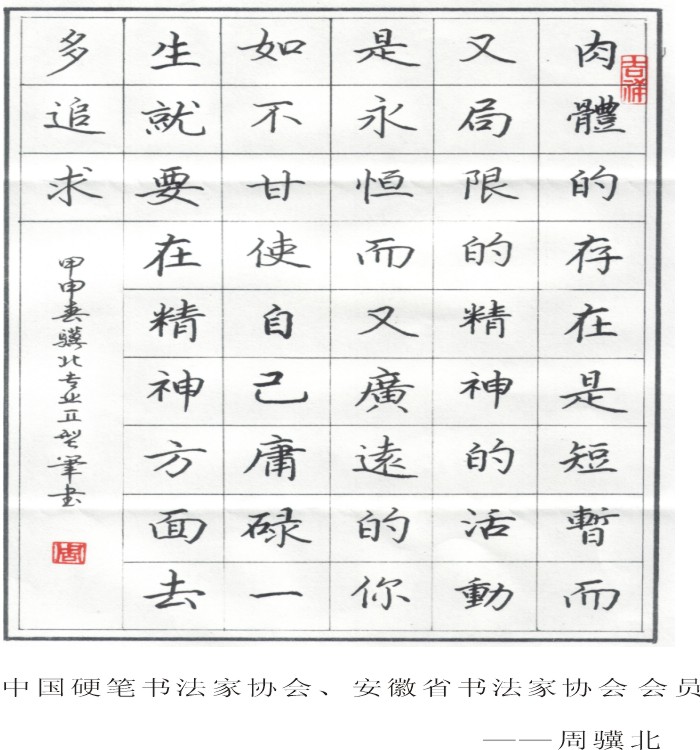 肉體的存在是短暫而
又局限的精神的活動
是永恒而又廣遠的你
如不甘使自己庸碌一
生就要在精神方面去
多追求
甲申春驥北专业豆型筆书
吉祥
周
中国硬笔书法家协会、安徽省书法家协会会员
——周骥北